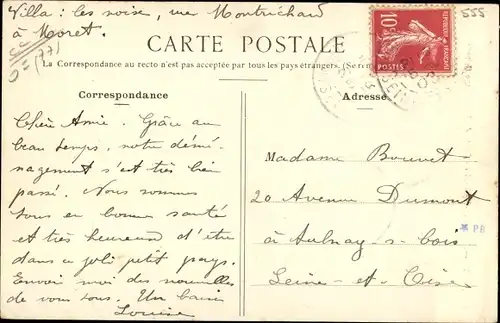 Villa : les noise, rue Montrichard
à Moret.
555
S et O
(77)
10c
CARTE POSTALE
La Correspondance au recto n'est pas acceptée par tous les pays étrangers.
Correspondance
Adresse
Chère Amie. Grâce au
beau temps, notre démé-
nagement s'est très bien
passé. Nous sommes
tous en bonne santé
et très heureuse d'être
dans ce joli petit pays.
Envoie moi des nouvelles
de vous tous. Un baiser
Louise
Madame Bouvet
20 Avenue Dumont
à Aulnay-s-bois
Seine-et-Oise